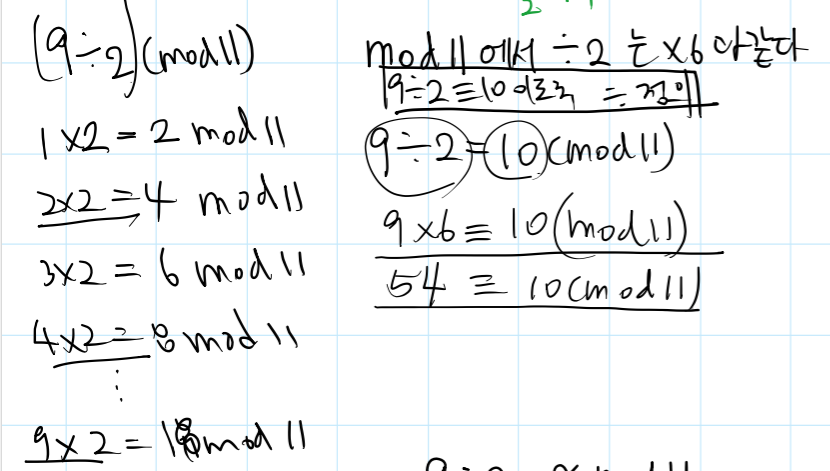 (9÷2)(mod 11)
1×2 = 2 mod 11
2×2 = 4 mod 11
3×2 = 6 mod 11
4×2 = 8 mod 11
⋮
9×2 = 18 mod 11
mod 11 에서 ÷2 는 ×6 와 같다
9÷2≡10 이로록 ÷ 정의
9÷2=10(mod 11)
9×6≡10(mod 11)
54 ≡ 10(mod 11)